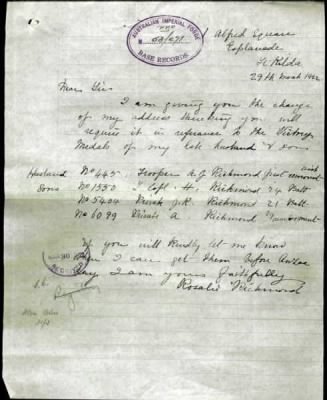 AUSTRALIAN IMPERIAL FORCE
BASE RECORDS
Alfred Square
Esplanade
St Kilda
29th March 1922
Dear Sir
I am giving you the change
of my address thinking you will
require it in reference to the Victory
Medals of my late husband & sons
Husband No 445 Trooper A J Richmond first reinforcement
Sons No 1550 Cpl H. Richmond 24 Batt
No 5404 Private J R. Richmond 21 Batt
No 6099 Private A Richmond reinforcement
If you will kindly let me know
when I can get them before Anzac
Day. I am yours faithfully
Rosalie Richmond
RECORDS